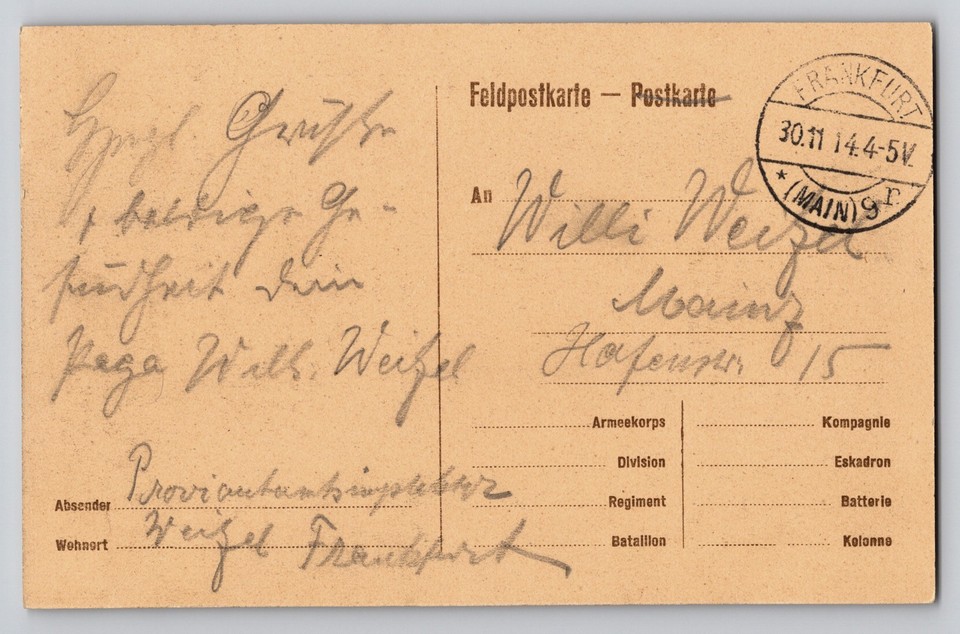 Herzl. Grüße
+ baldige Ge-
sundheit Dein
Papa Wilh. Weitzel
Absender Proviantamtsinspektor
Wohnort Weitzel Frankfurt
Feldpostkarte — Postkarte
FRANKFURT
30.11 14.4-5V.
* (MAIN) 9 r
An Willi Weitzel
Mainz
Hafenstr. 15
Armeekorps
Division
Regiment
Bataillon
Kompagnie
Eskadron
Batterie
Kolonne